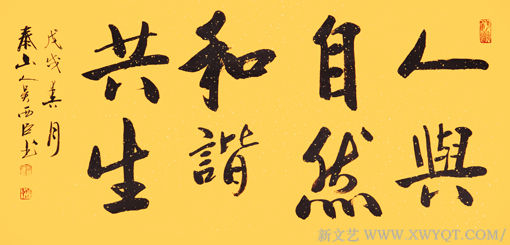 人與
自然
和諧
共生
戊戌美月
泰山人吴西臣书
新文艺／WWW.XWYQT.COM/